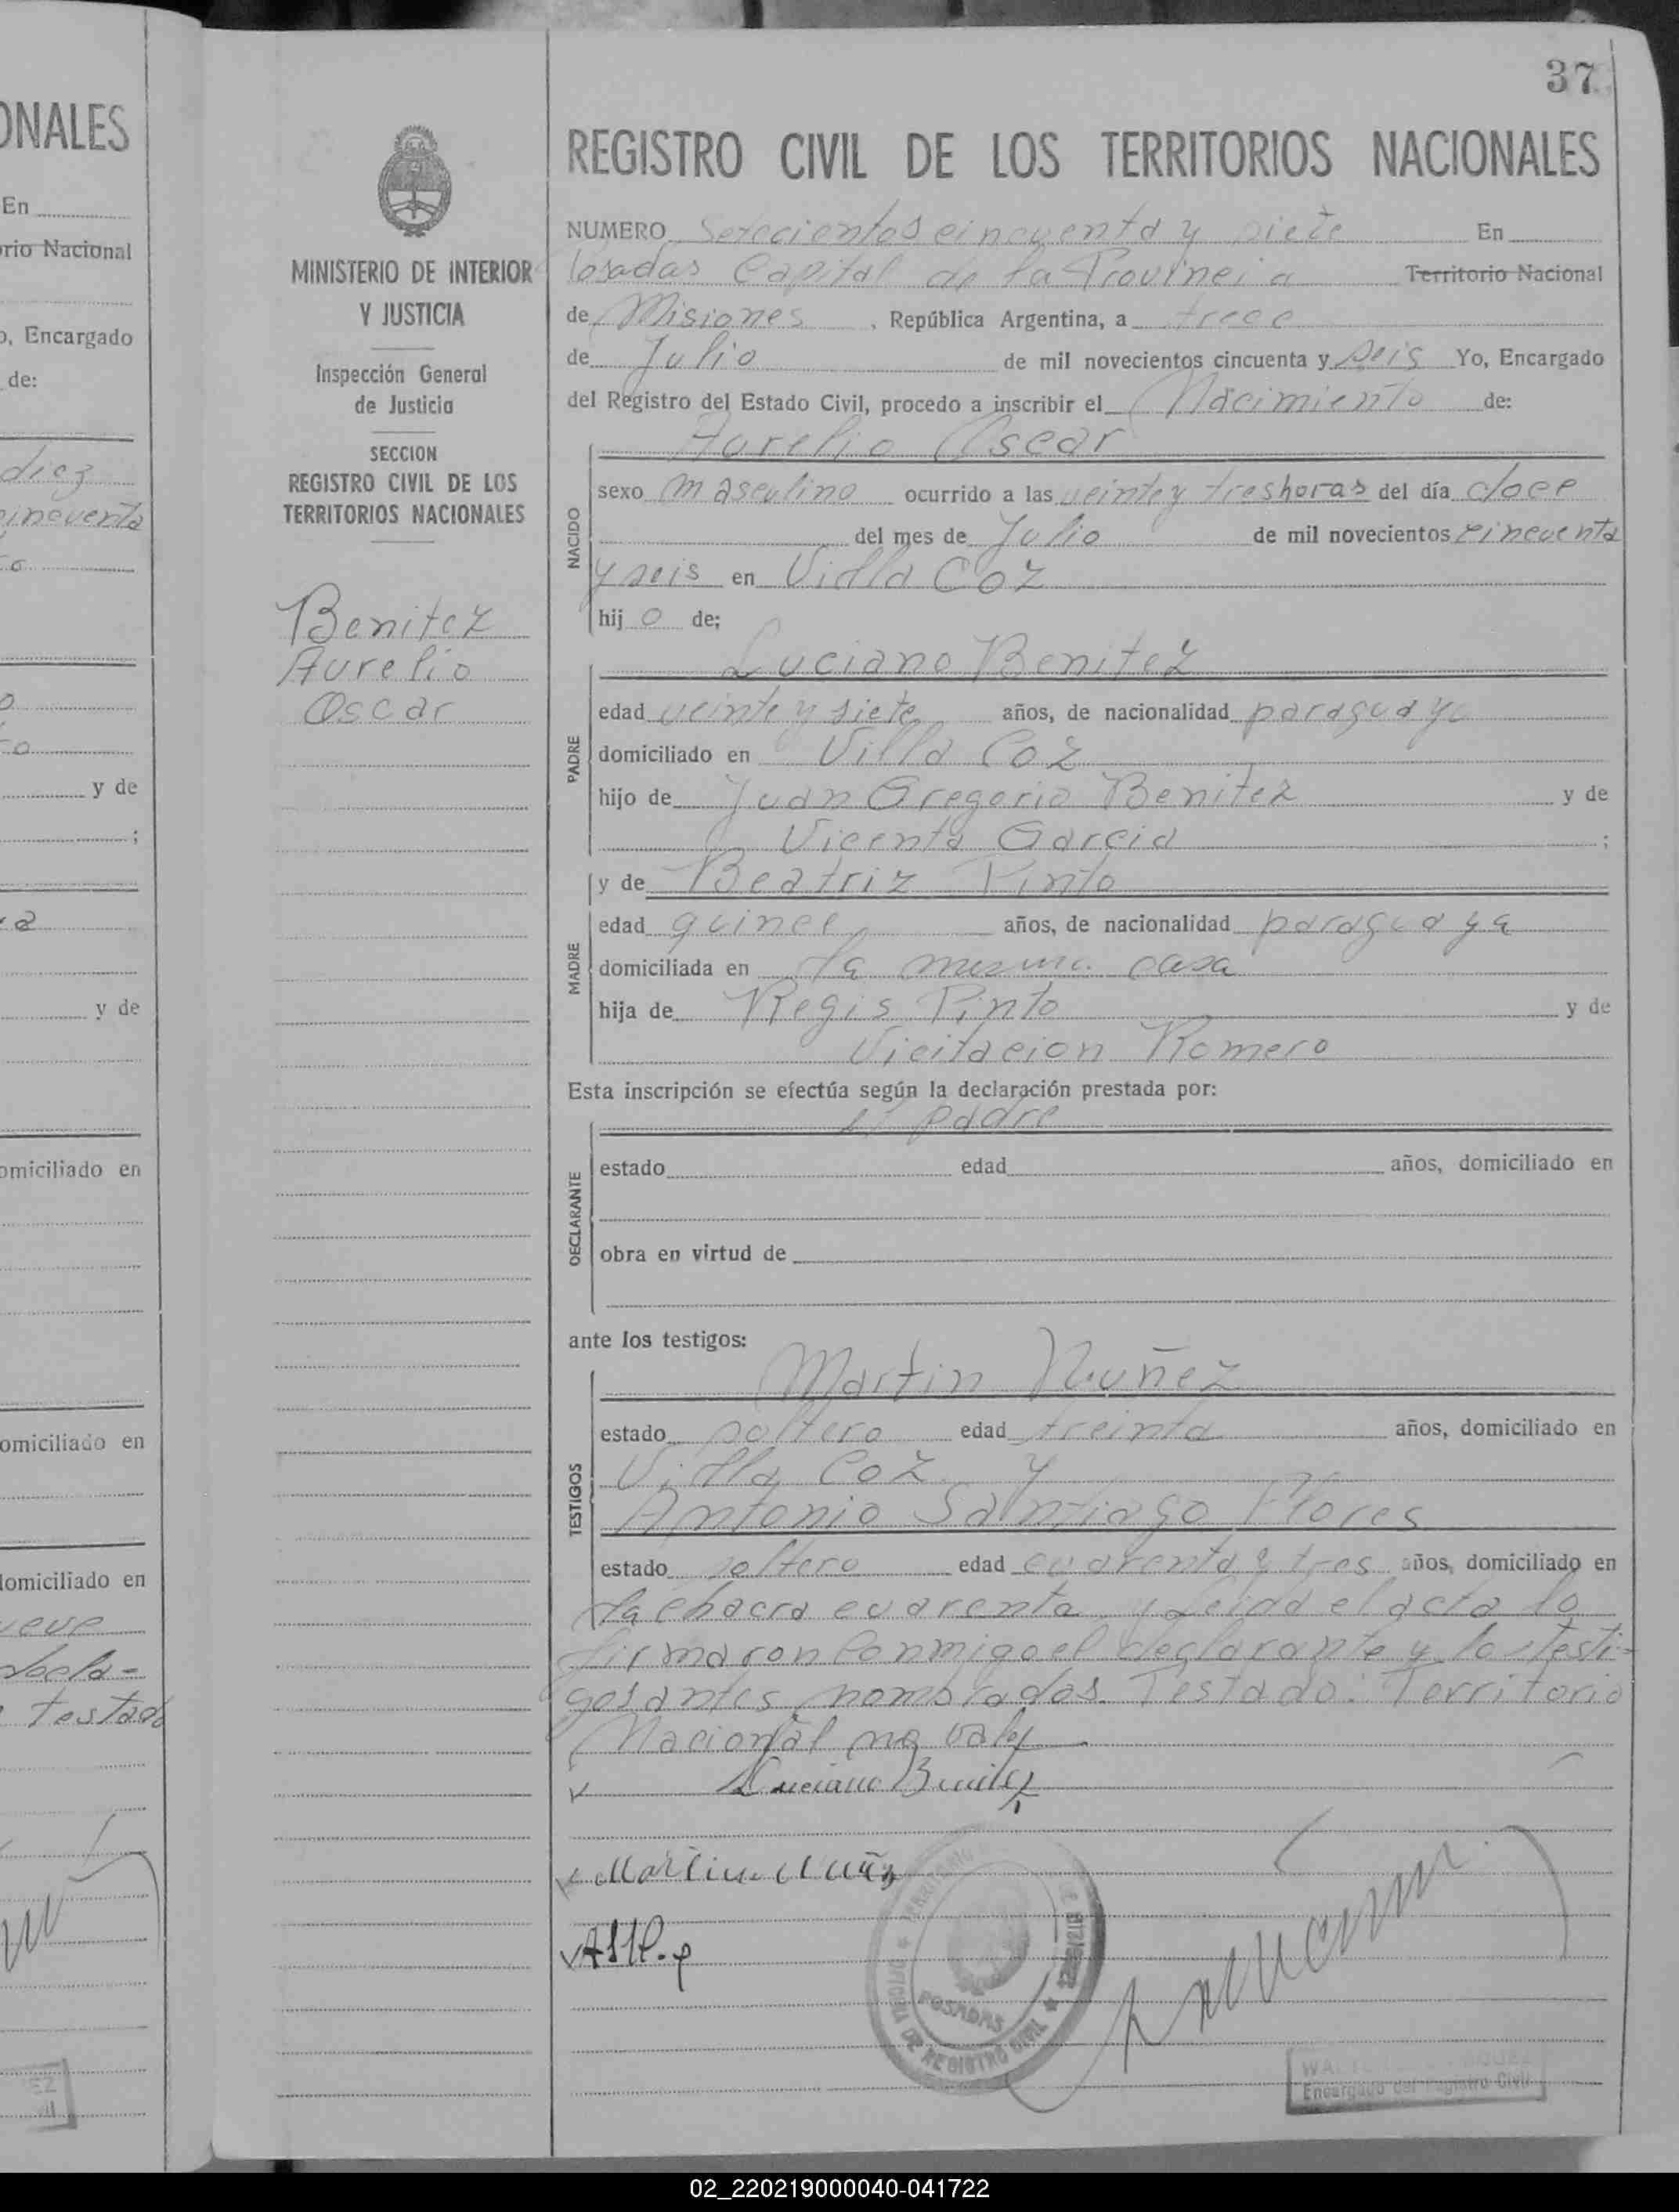 ONALES
En
rio Nacional
o, Encargado
de:
diez
cincuenta
o
o
y de
;
a
y de
omiciliado en
omiciliado en
domiciliado en
ueve
decla-
testado
MINISTERIO DE INTERIOR
Y JUSTICIA
Inspección General
de Justicia
SECCION
REGISTRO CIVIL DE LOS
TERRITORIOS NACIONALES
Benitez
Aurelio
Oscar
37
REGISTRO CIVIL DE LOS TERRITORIOS NACIONALES
NUMERO Setecientos cincuenta y siete En
Posadas Capital de la Provincia Territorio Nacional
de Misiones, República Argentina, a trece
de Julio de mil novecientos cincuenta y seis Yo, Encargado
del Registro del Estado Civil, procedo a inscribir el Nacimiento de:
Aurelio Oscar
NACIDO
sexo masculino ocurrido a las veinte y tres horas del día doce
del mes de Julio de mil novecientos cincuenta
y seis en Villa Coz
hijo de;
Luciano Benitez
PADRE
edad veinte y siete años, de nacionalidad paraguayo
domiciliado en Villa Coz
hijo de Juan Gregorio Benitez y de
Vicenta Garcia ;
y de Beatriz Pinto
MADRE
edad quince años, de nacionalidad paraguaya
domiciliada en la misma casa
hija de Regis Pinto y de
Vicitacion Romero
Esta inscripción se efectúa según la declaración prestada por:
el padre
DECLARANTE
estado edad años, domiciliado en
obra en virtud de
ante los testigos:
Martin Nuñez
TESTIGOS
estado soltero edad treinta años, domiciliado en
Villa Coz y
Antonio Santiago Flores
estado soltero edad cuarenta y tres años, domiciliado en
la chacra cuarenta y leida el acta la
firmaron conmigo el declarante y los testi-
gos antes nombrados. Testado: Territorio
Nacional no vale
Luciano Benitez
Martin Nuñez
POSADAS
REGISTRO CIVIL
Encargado del Registro Civil
02_220219000040-041722